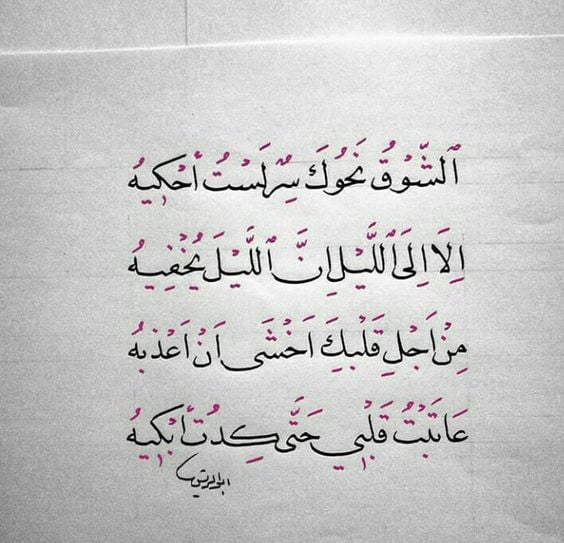 اَلشَّوْقُ نَحْوَكَ سِرٌ لَسْتُ أَحْكِيهُ
اِلَا اِلَى اللَّيْلِ اِنَّ اللَّيْلَ يُخْفِيهُ
مِنْ اَجْلِ قَلْبِكَ اَخْشَى اَنْ اَعْذِبهُ
عَاتَبْتُ قَلْبِي حَتَّى كِدْتُ أَبْكِيهُ